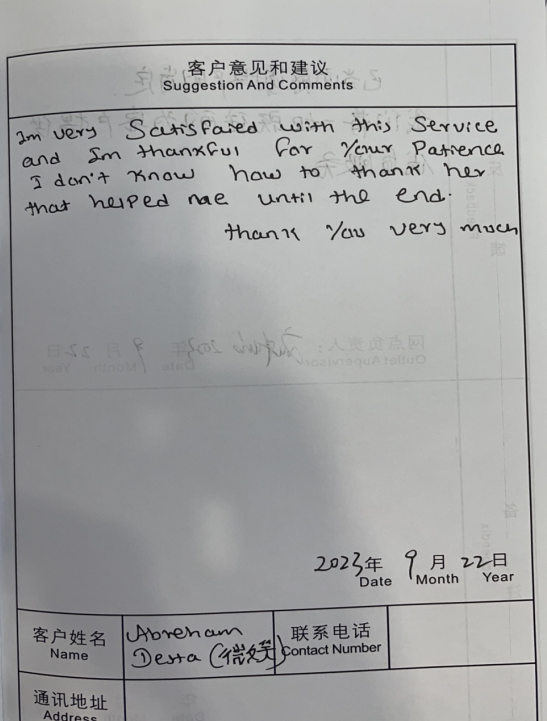 客户意见和建议
Suggestion And Comments
Im very Satisfaied with this Service
and Im thankful for your Patience
I don't know how to thank her
that helped me until the end.
thank you very much
2023年 9月 22日
Date Month Year
客户姓名 Abreham 联系电话
Name Desta (微笑) Contact Number
通讯地址
Address